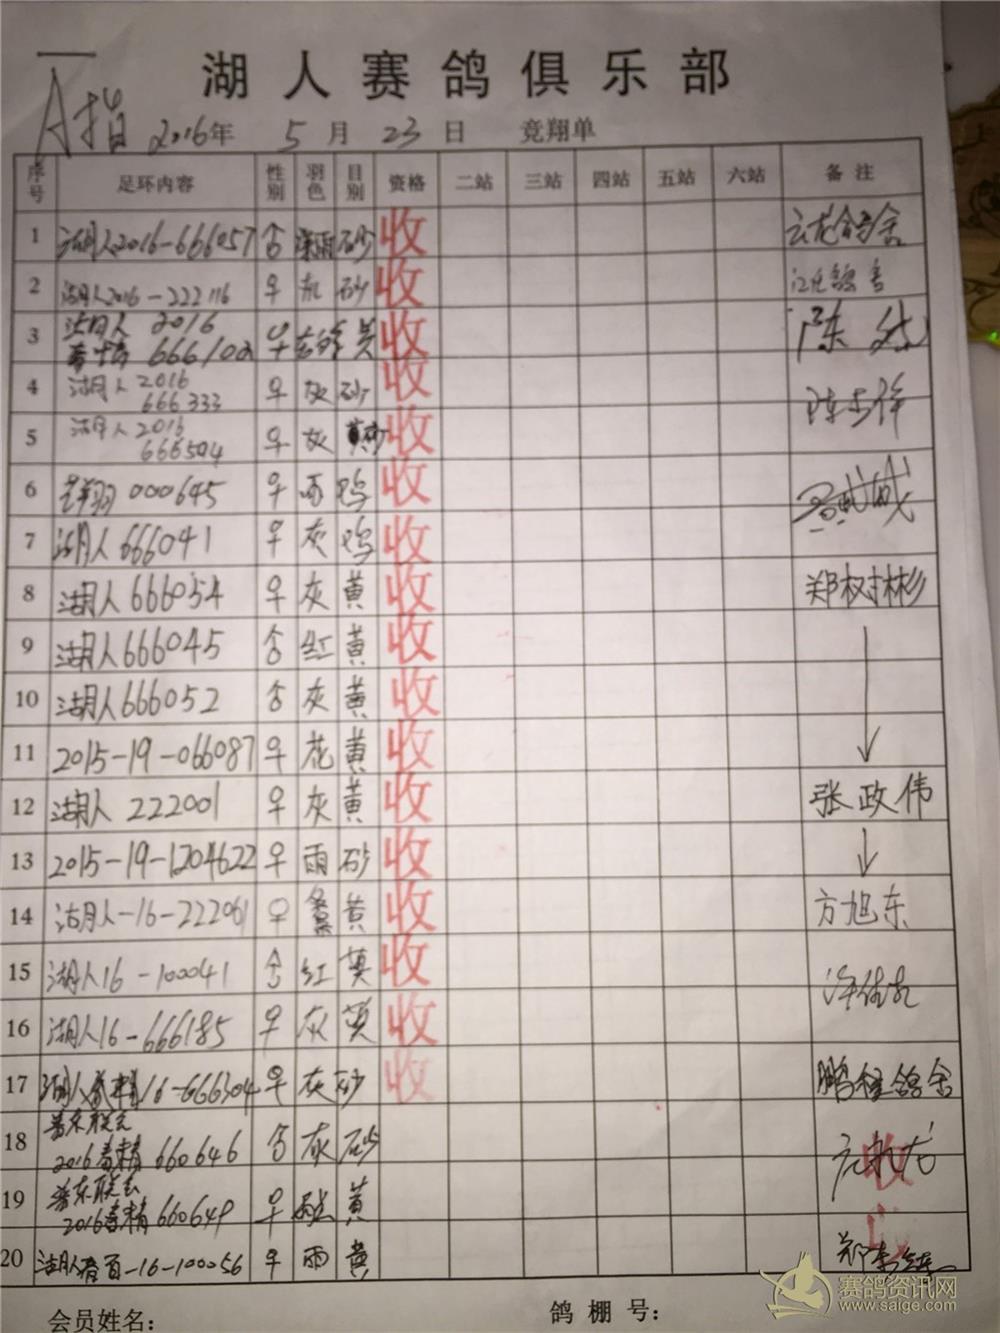 湖人赛鸽俱乐部
A指 2016年 5月 23日 竞翔单
序号 足环内容 性别 羽色 目别 资格 二站 三站 四站 五站 六站 备注
1 湖人2016-666057 合 深雨 砂 收 云龙鸽舍
2 湖人2016-222116 ♀ 灰 砂 收
3 湖人 2016
春精 666102 ♀ 黄 收 陈
4 湖人 2016
666333 ♀ 灰 砂 收 陈
5 湖人 2016
666504 ♀ 灰 砂 收
6 翔 000645 ♀ 鸡 收
7 湖人 666041 ♀ 灰 鸡 收
8 湖人 666054 ♀ 灰 黄 收 郑树彬
9 湖人 666045 合 红 黄 收
10 湖人 666052 合 灰 黄 收
11 2015-19-066087 ♀ 花 黄 收
12 湖人 222001 ♀ 灰 黄 收 张政伟
13 2015-19-1204622 ♀ 雨 砂 收
14 湖人-16-222061 ♀ 黄 收 方旭东
15 湖人16-100041 合 红 黄 收
16 湖人16-666185 ♀ 灰 黄 收
17 湖人春精16-666304 ♀ 灰 砂 收 鹏程鸽舍
18 普东联会
2016春精 660646 合 灰 砂 收
19 普东联会
2016春精 660649 ♀ 黄
20 湖人春百-16-100056 ♀ 雨 黄 郑
会员姓名： 鸽棚号：
赛鸽资讯网
www.saige.com